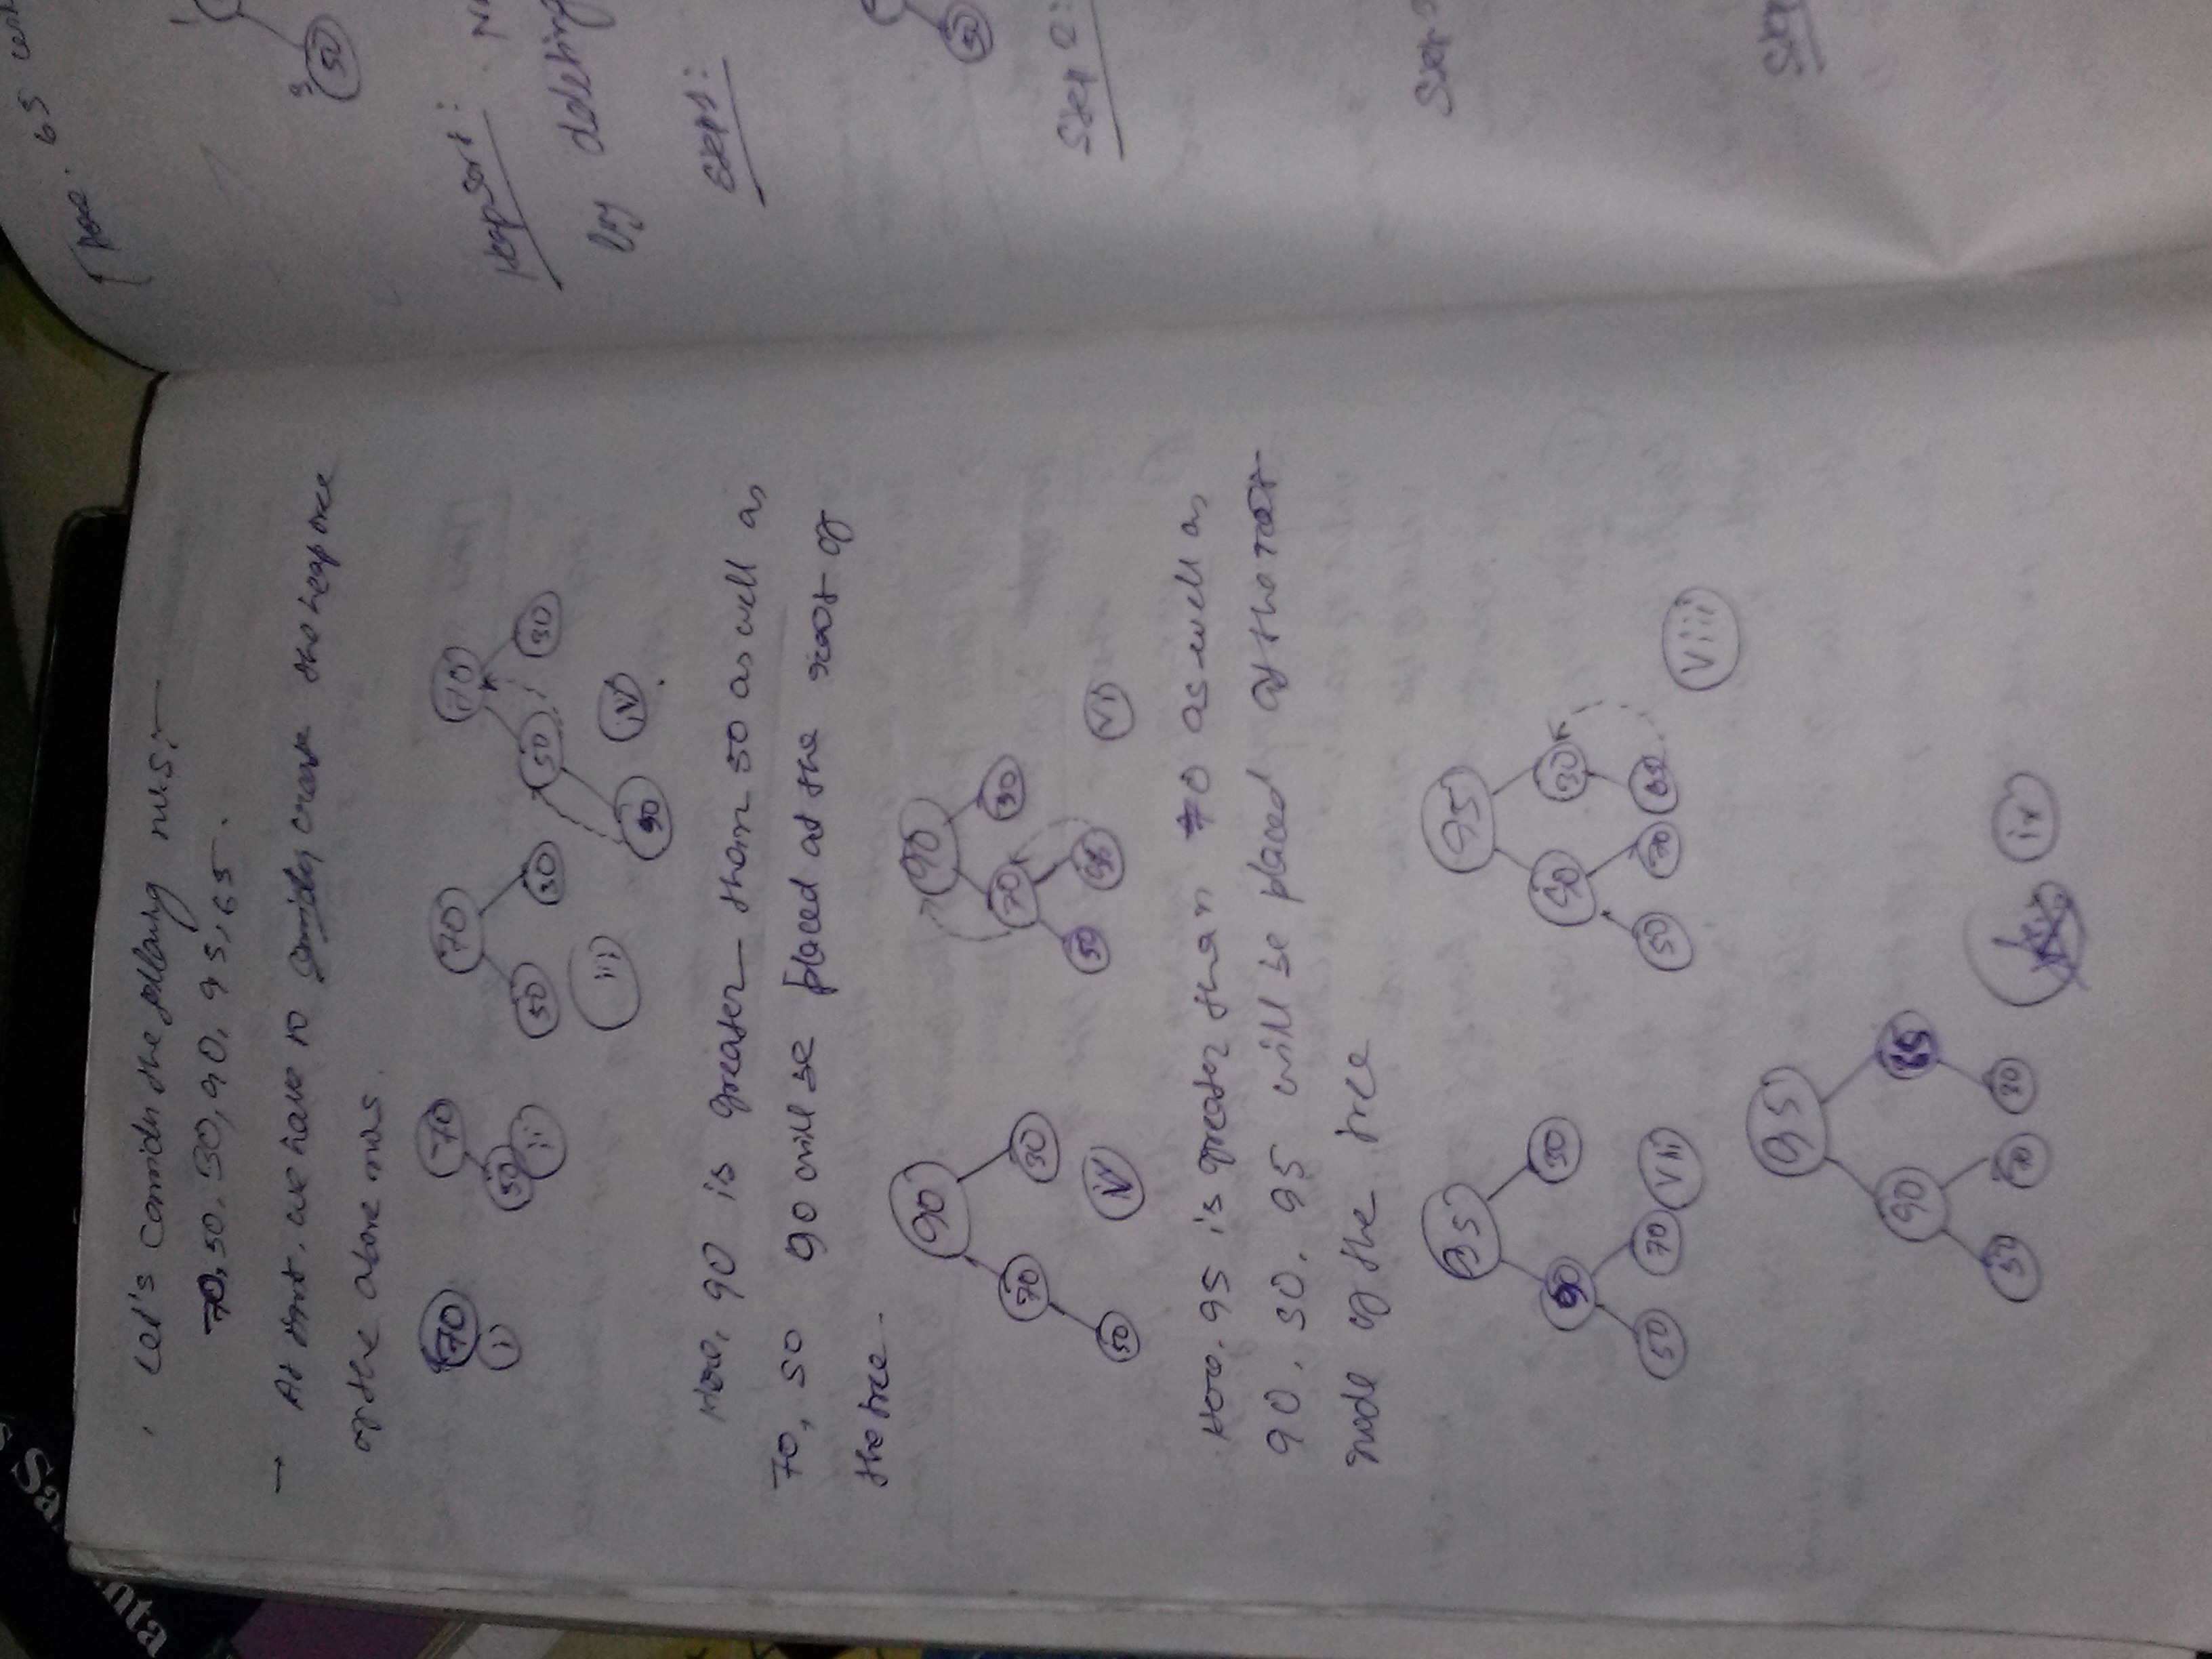 Let's consider the following no.s:-
70, 50, 30, 90, 95, 65.
→ At first, we have to create the heap tree
of the above no.s.
70 70 70 70
i 50 ii 50 30 50 30
iii 90 iv
Here, 90 is greater than 50 as well as
70, so 90 will be placed at the root of
the tree.
90 90
70 30 70 30
50 v 50 95 vi
Here, 95 is greater than 70 as well as
90. so, 95 will be placed at the root
node of the tree
95 95
90 30 90 30
50 70 vii 50 70 65
viii
95
90 65
50 70 30 ix
Here. 65
50
Heap Sort:
by deleting
Step 1:
50
Step 2:
Step
Step